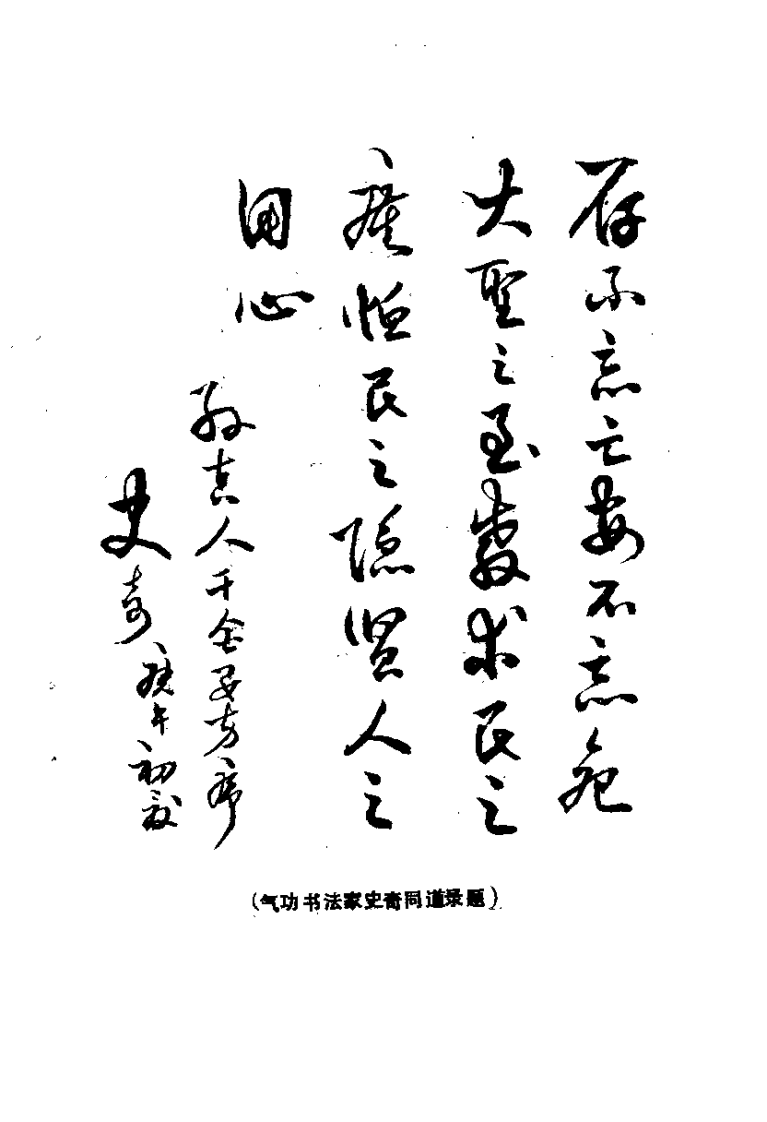 存不忘亡安不忘危
大聖之至教求民之
瘼恤民之隐贤人之
用心
孙真人千金要方序
史奇
庚午初夏
(气功书法家史奇同道录题)